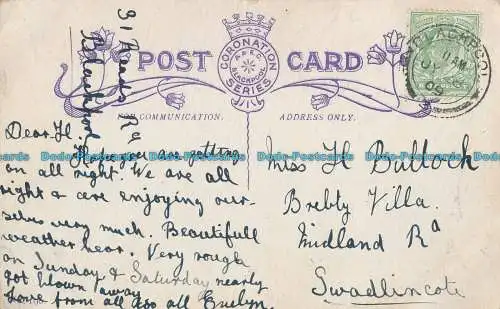 31 Reads Rd
Blackpool
POST CARD
CORONATION
SERIES
BLACKPOOL
FOR COMMUNICATION.
ADDRESS ONLY.
BLACKPOOL
11 AM
09
Dear H.
Hope you are getting
on all right. We are all
right & are enjoying our-
selves very much. Beautifull
weather hear. Very rough
on Sunday & Saturday nearly
got blown away
Love from all to all Evelyn.
Miss H Bullock
Bretby Villa.
Midland Rd
Swadlincote
Dodo-Postcards Dodo-Postcards Dodo-Postcards Dodo-Postcards